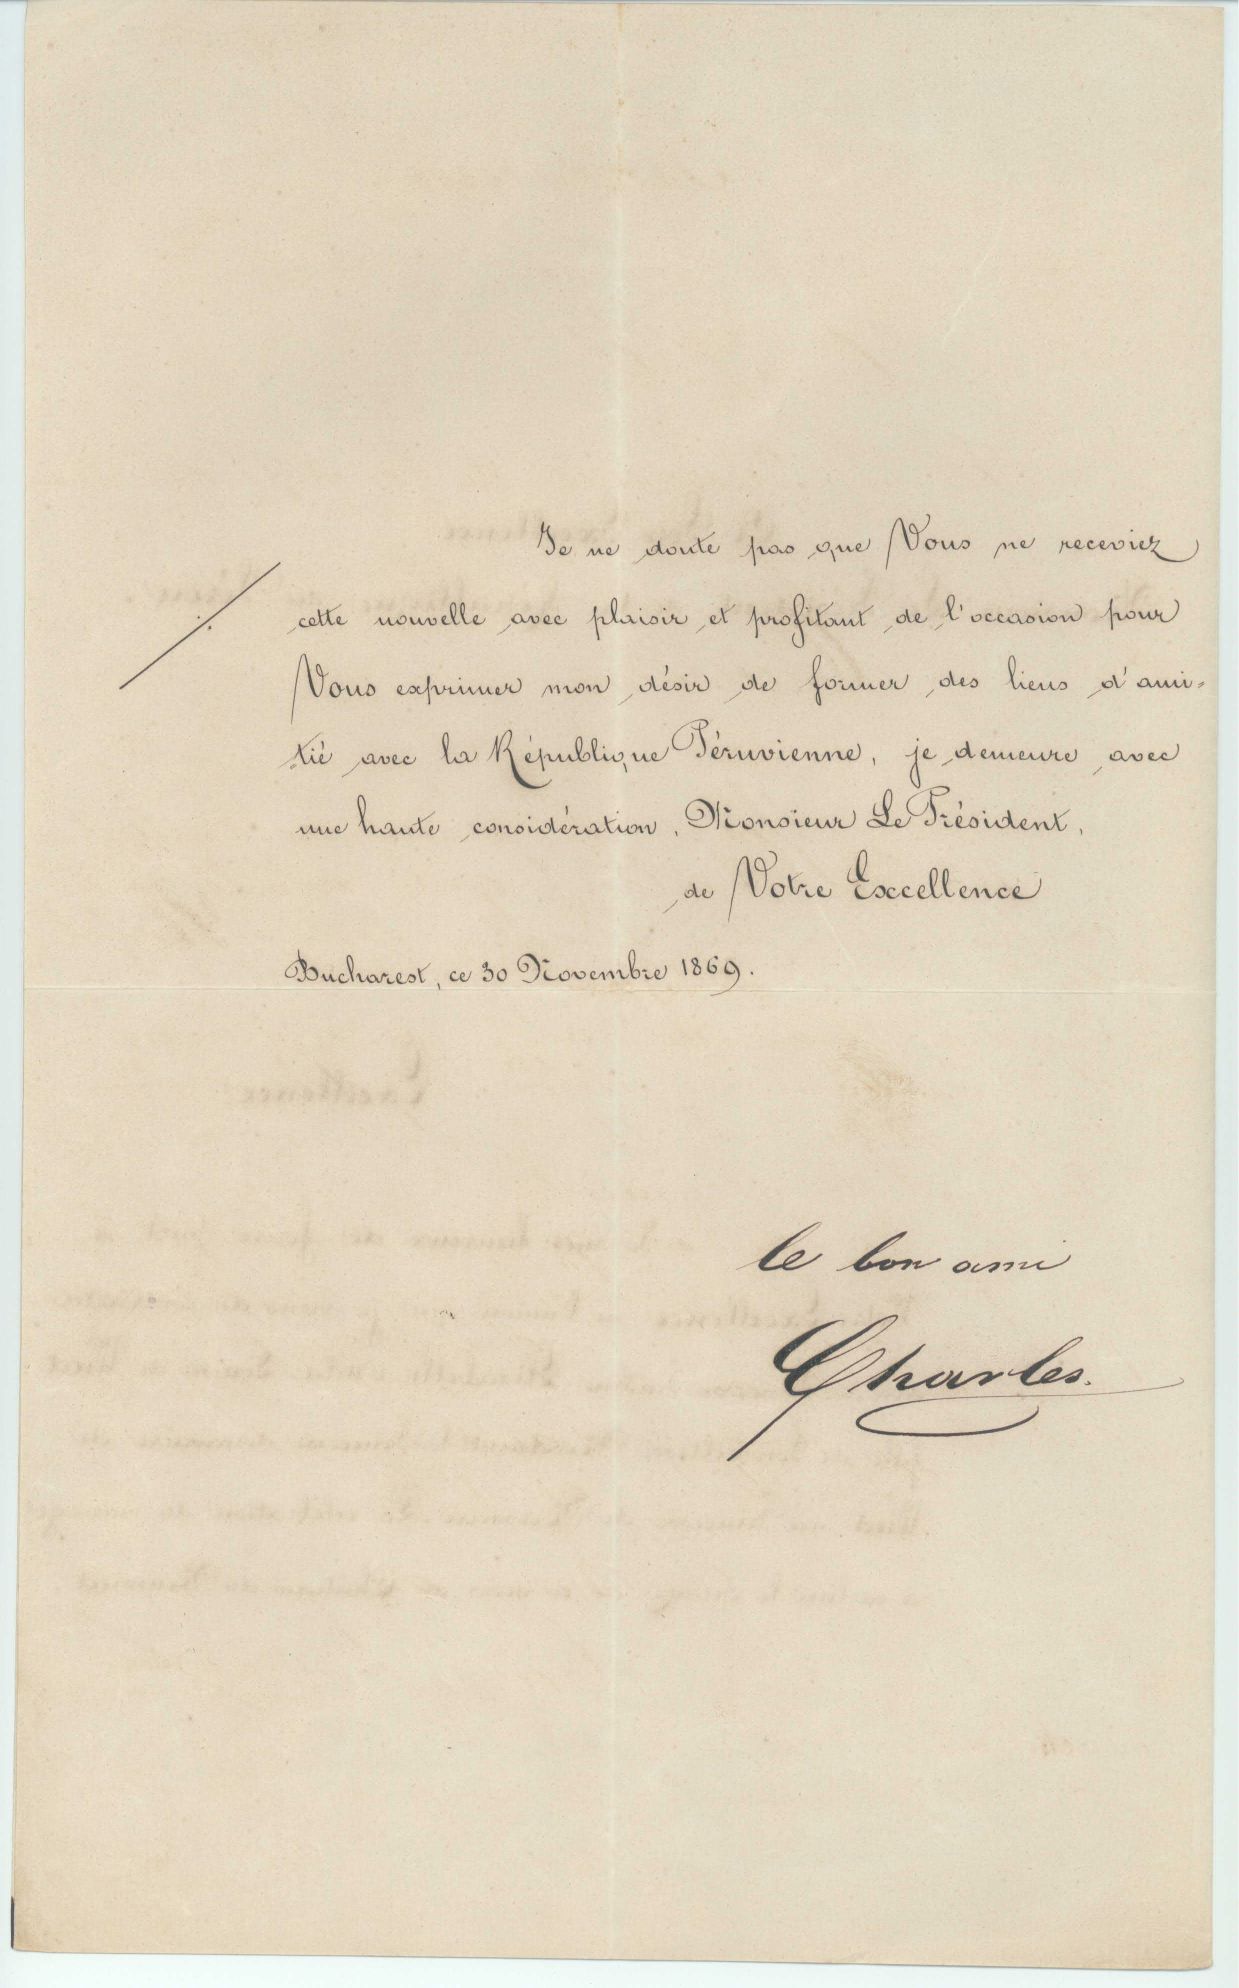 Je ne doute pas que Vous ne receviez
cette nouvelle avec plaisir et profitant de l'occasion pour
Vous exprimer mon désir de former des liens d'ami-
tié avec la République Péruvienne, je demeure avec
une haute considération, Monsieur Le Président,
de Votre Excellence
Bucharest, ce 30 Novembre 1869.
le bon ami
Charles.